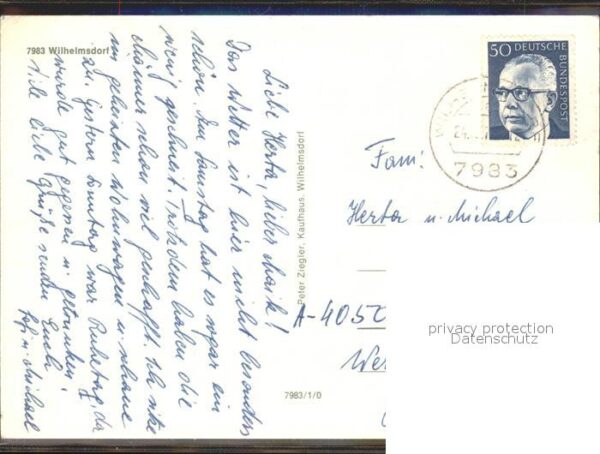 7983 Wilhelmsdorf
Liebe Herta, lieber Maik!
Das Wetter ist hier nicht besonders
schön. Am Samstag hat es sogar ein
wenig geschneit. Trotzdem haben die
Männer schon viel geschafft. Ich sitze
im geheizten Wohnwagen u. schaue
zu. Gestern Sonntag war Ruhetag, da
wurde gut gegessen u. getrunken!
Viele liebe Grüße senden Euch
u. Michael
Peter Ziegler, Kaufhaus, Wilhelmsdorf
7983/1/0
50 DEUTSCHE
BUNDESPOST
7983
Fam:
Herta u. Michael
A-4050
privacy protection
Datenschutz